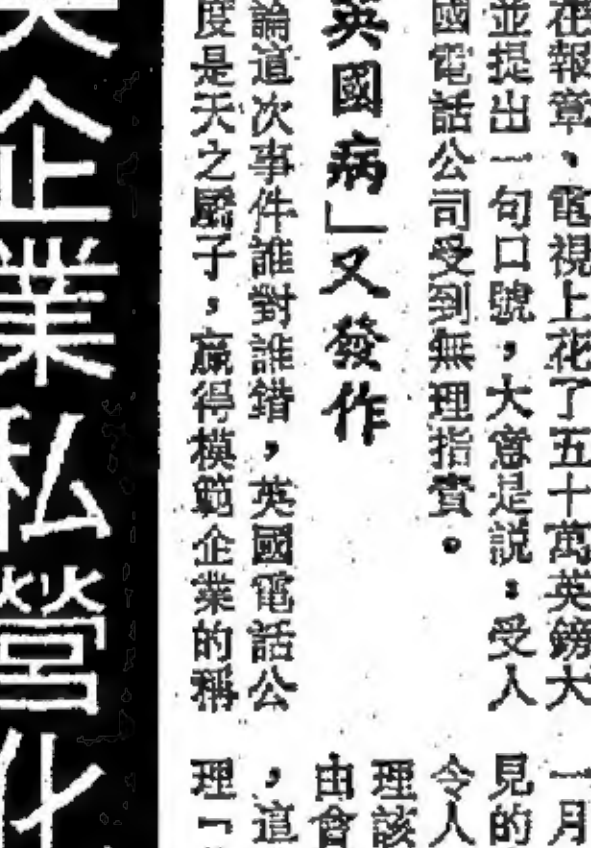 在報章、電視上花了五十萬英鎊大
並提出一句口號，大意是説：受人
國電話公司受到無理指責。
英國病」又發作
論這次事件誰對誰錯，英國電話公
度是天之驕子，贏得模範企業的稱
一月
見的
令人
理該
由會
，這
理「
大企業私營化